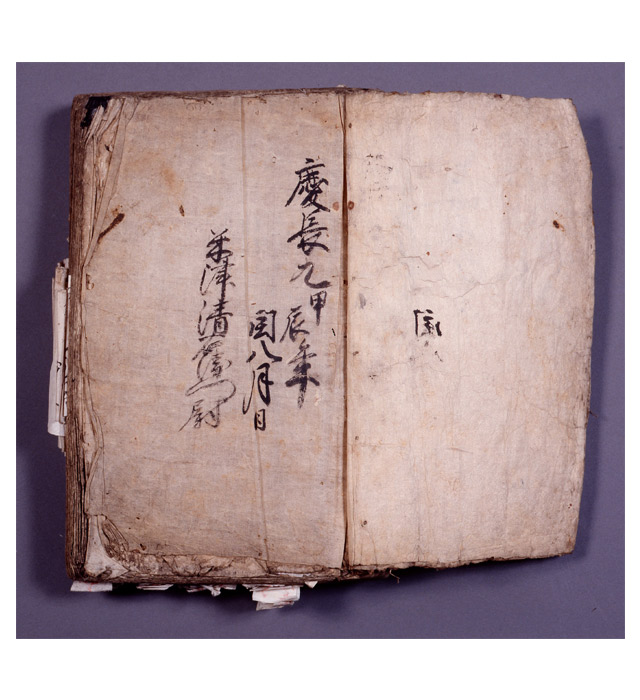 慶長九甲辰年
閏八月日
米津清右衛門尉